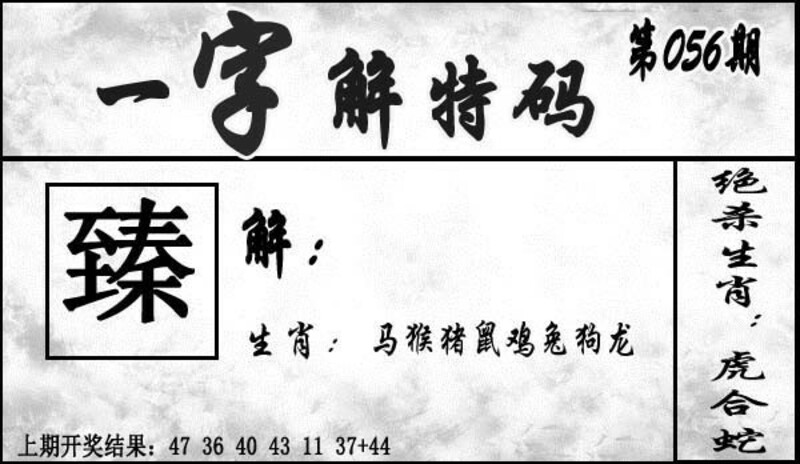 一字解特码
第056期
臻
解：
生肖：马猴猪鼠鸡兔狗龙
上期开奖结果：47 36 40 43 11 37+44
绝杀生肖：虎合蛇